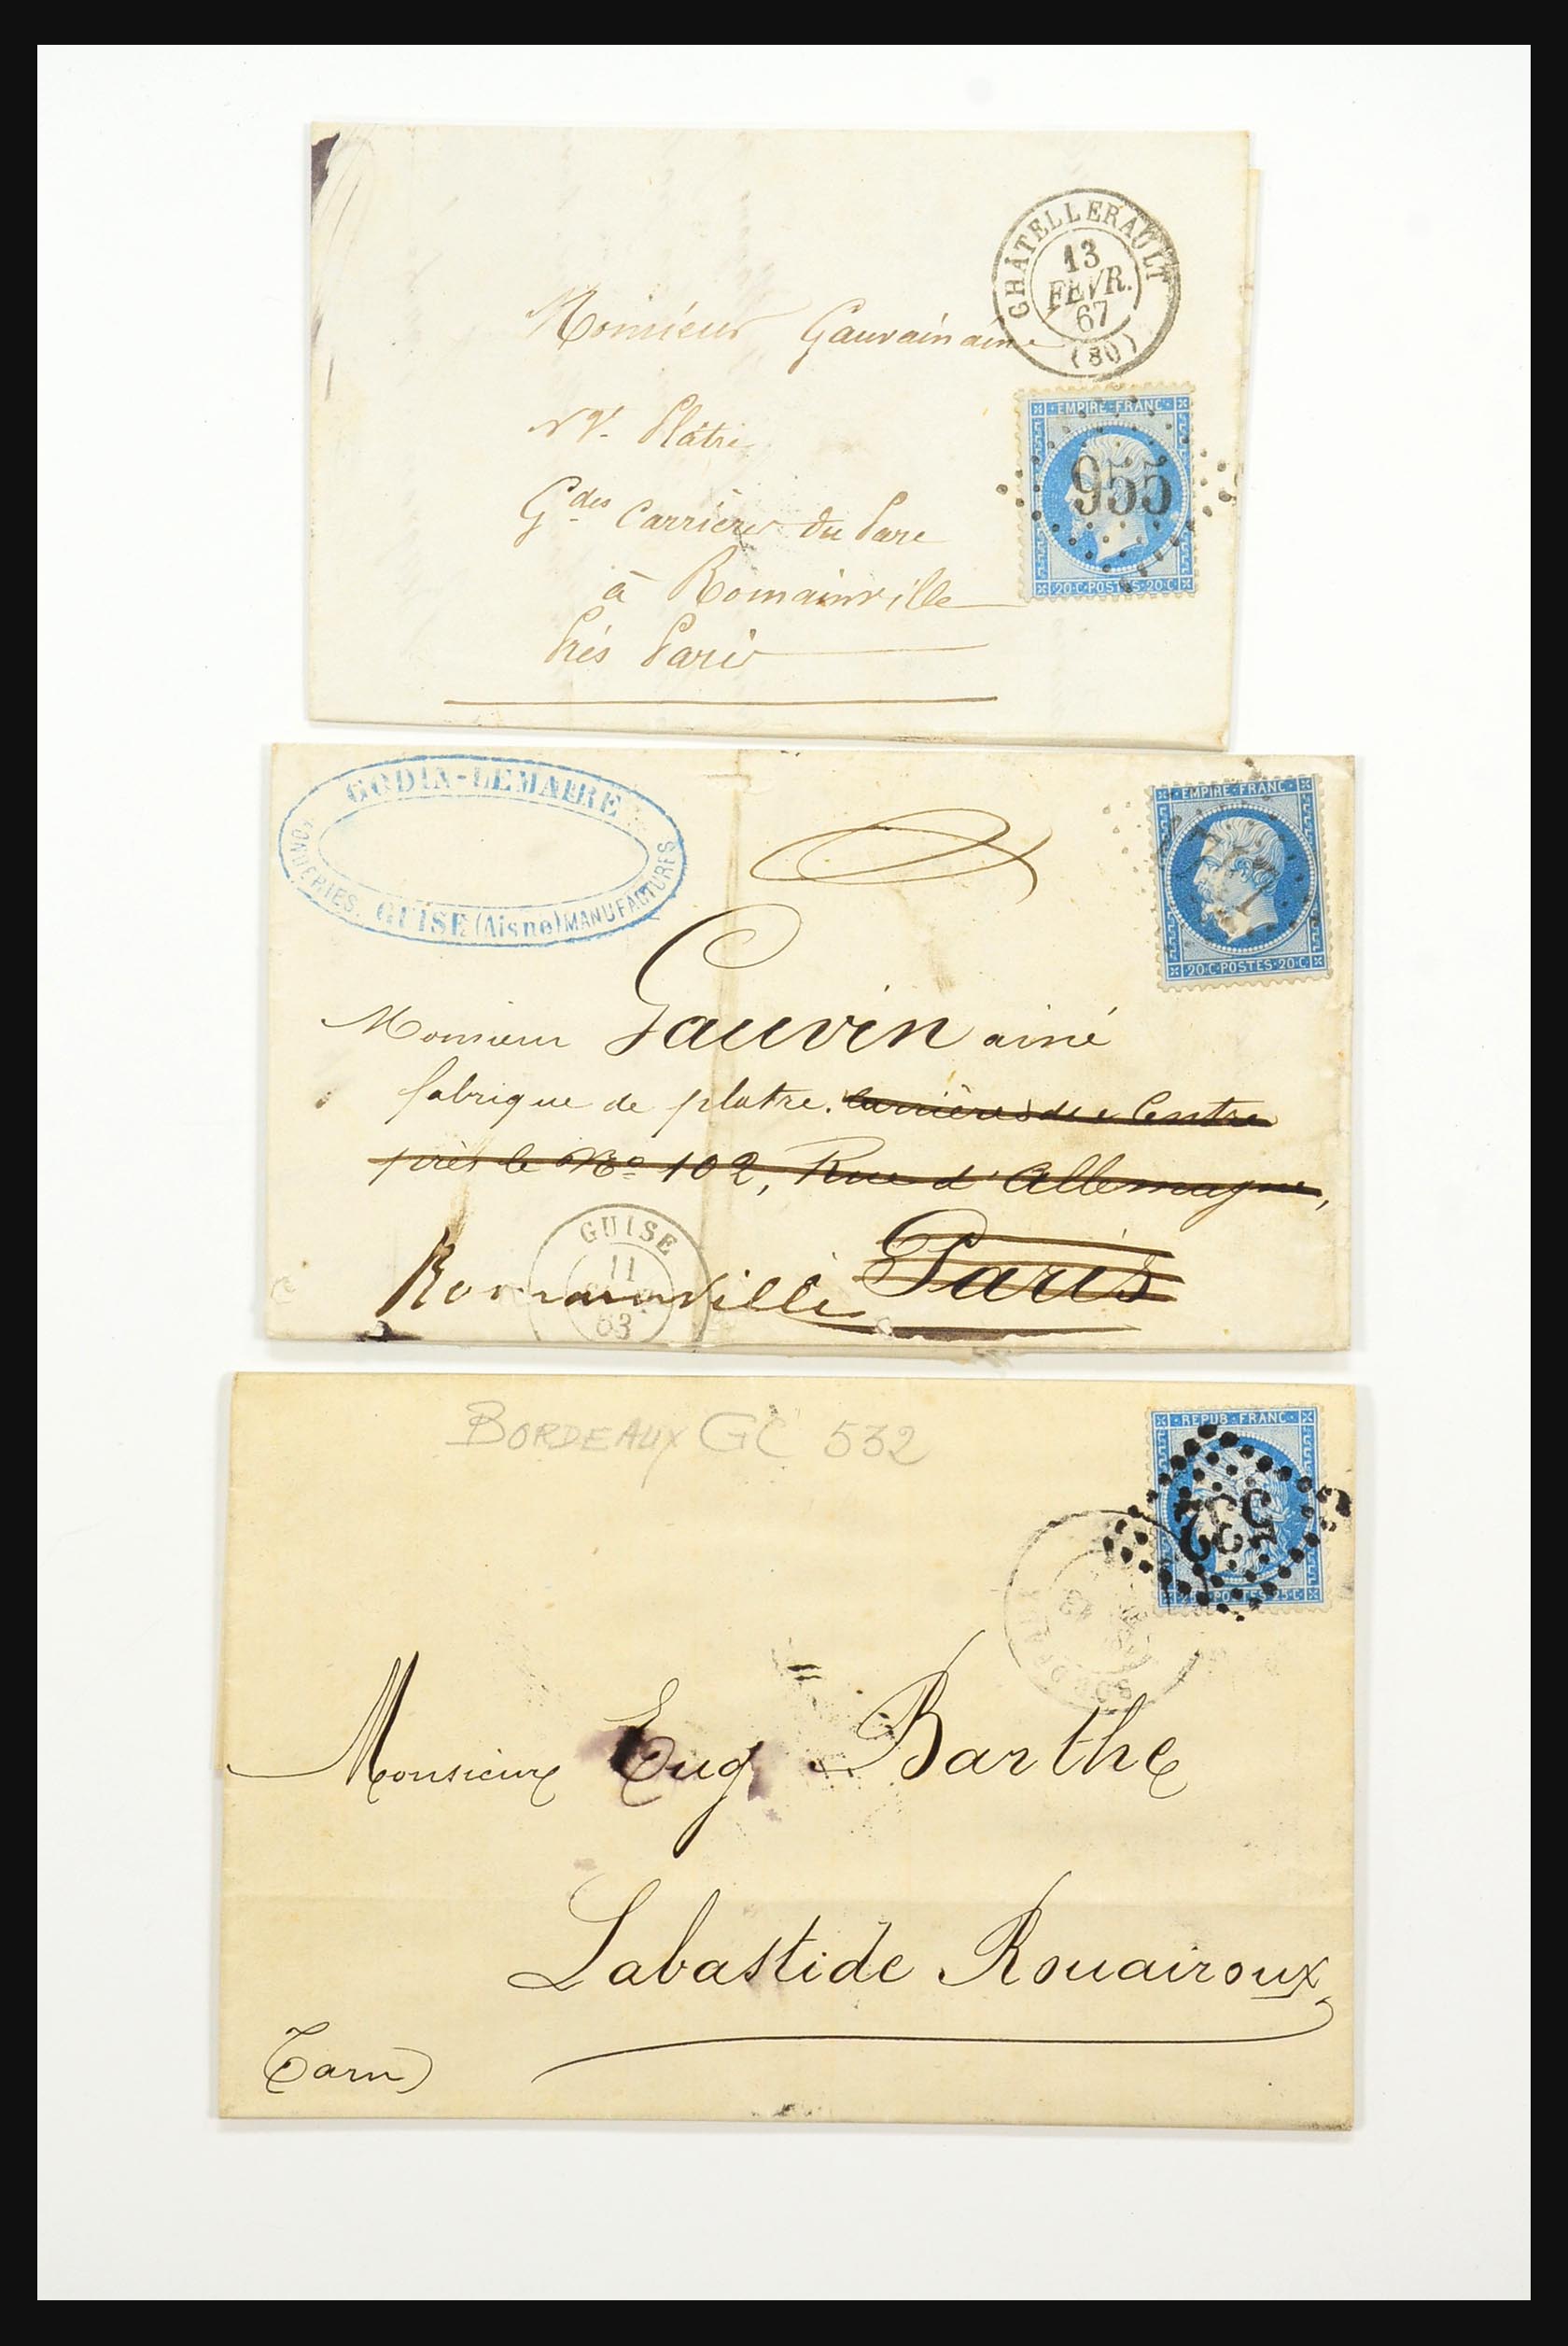 CHATELLERAULT
13
FEVR.
67
(80)
Monsieur Gauvain ainé
EMPIRE·FRANC·
955
20·C·POSTES·20·C
Plâtre
Gdes Carrières du Parc
à Romainville
Près Paris
GODIN-LEMAIRE
FONDERIES. GUISE (Aisne) MANUFACTURES
EMPIRE·FRANC·
20·C·POSTES·20·C
Monsieur Gauvin ainé
fabrique de platre. Carrières du Centre
près le No 102, Rue d'Allemagne,
Romainville Paris
GUISE
11
63
BORDEAUX GC 532
REPUB·FRANC·
532
25·C·POSTES·25·C
BORDEAUX
Monsieur Eug Barthe
Labastide Rouairoux
(Tarn)